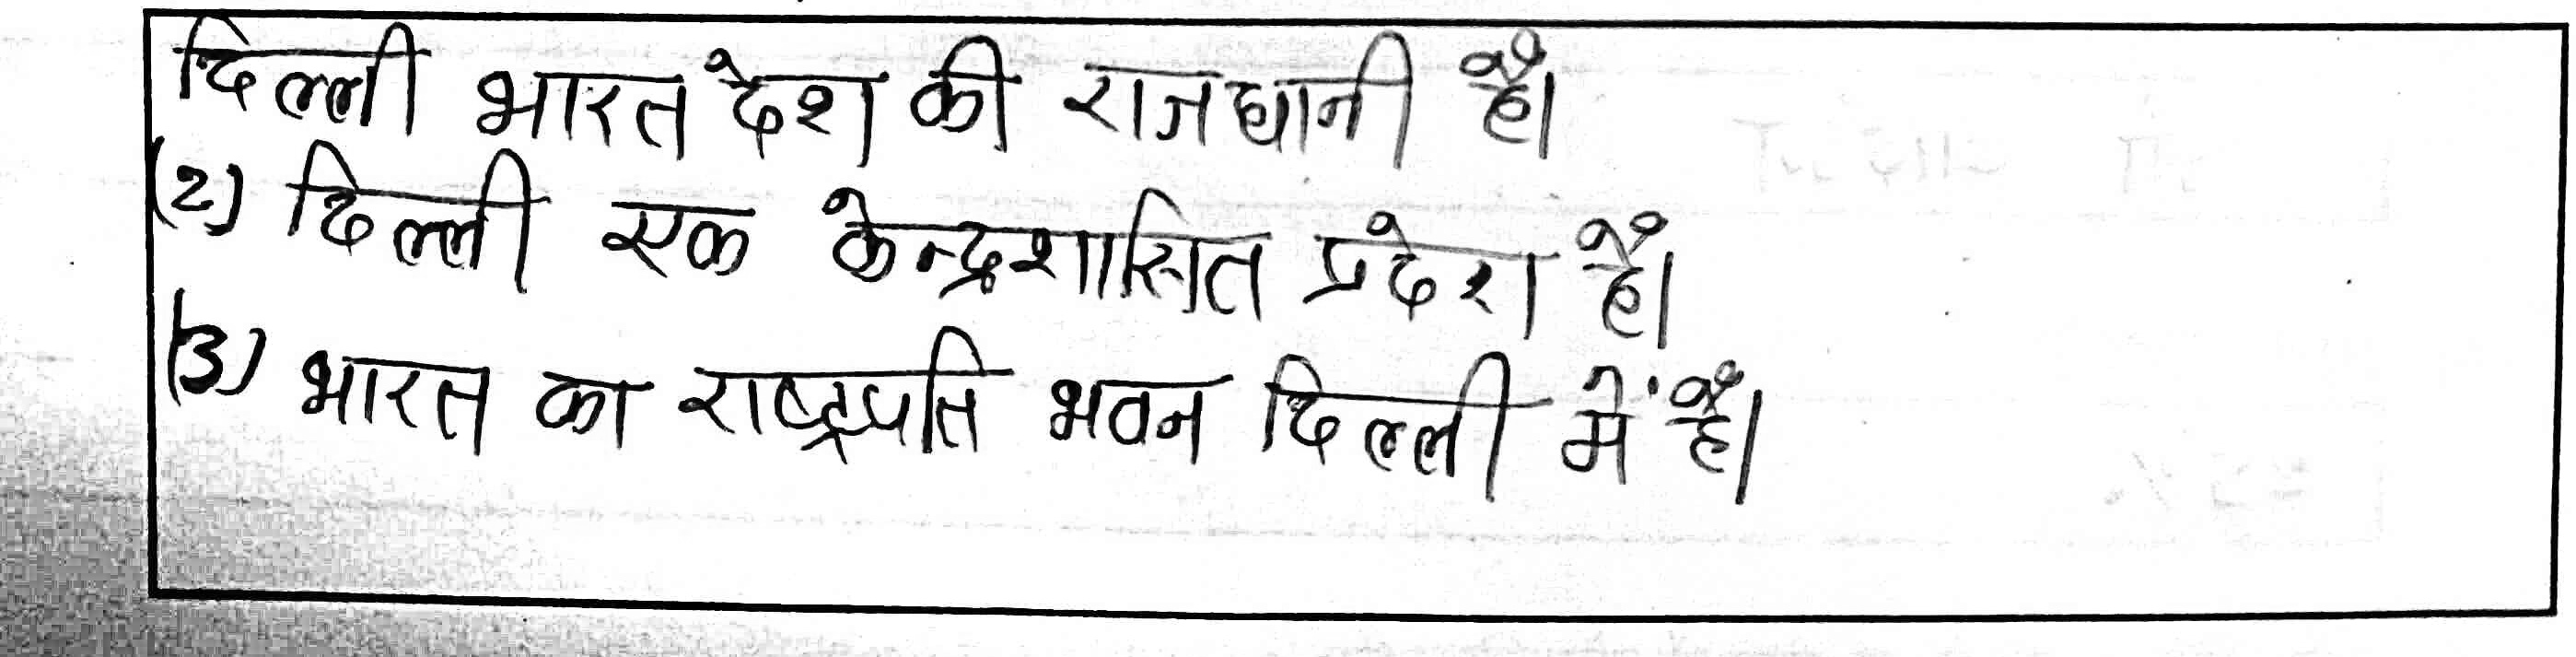 दिल्ली भारत देश की राजधानी है।
(2) दिल्ली एक केन्द्रशासित प्रदेश है।
(3) भारत का राष्ट्रपति भवन दिल्ली में है।